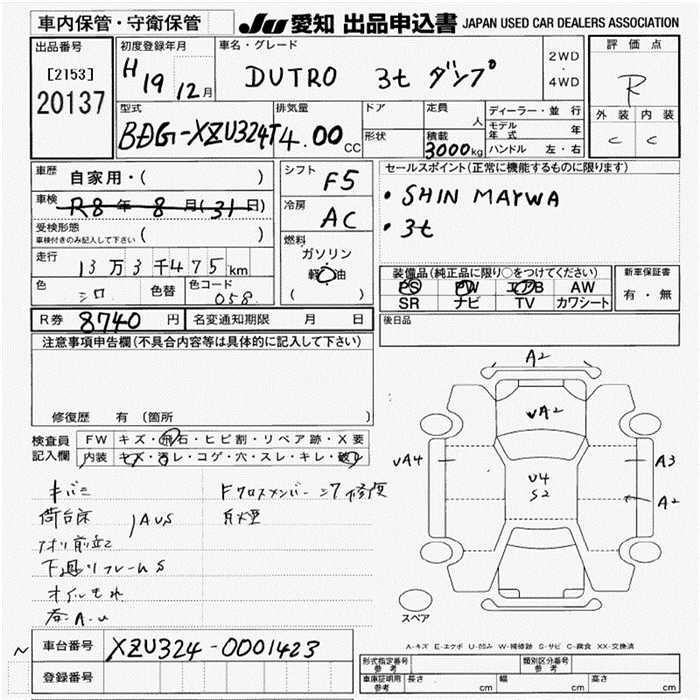 車内保管・守衛保管
JU 愛知 出品申込書 JAPAN USED CAR DEALERS ASSOCIATION
出品番号
[2153]
20137
初度登録年月
H19 12月
車名・グレード
DUTRO 3t ダンプ
2WD
・
4WD
評価点
R
外装 内装
C C
型式
BDG-XZU324T
排気量
4.00 CC
ドア
形状
定員
人
積載
3000kg
ディーラー・並行
モデル年式 年
ハンドル 左・右
車歴
自家用・( )
車検
R8年8月(31日)
受検形態
車検付きのみ記入して下さい ( )
走行
13万3千475km
色
シロ
色替
色コード
058
シフト
F5
冷房
AC
燃料
ガソリン
軽油
( )
セールスポイント(正常に機能するものに限ります)
・SHIN MAYWA
・3t
装備品(純正品に限り○をつけてください)
PS PW エアB AW
SR ナビ TV カワシート
新車保証書
有・無
R券 8740 円
名変通知期限 月 日
後日品
注意事項申告欄(不具合内容等は具体的に記入して下さい)
修復歴 有 (箇所 )
検査員
記入欄
FW キズ・飛石・ヒビ割・リペア跡・X要
内装 キズ・汚レ・コゲ・穴・スレ・キレ・破レ
キバミ
荷台床
アオリ前立て
下廻リフレームS
オイルもれ
A.U
Fクロスメンバー
修復
A2
VA2
VA4
U4
S2
A3
A2
スペア
A-キズ E-エクボ U-凹み W-補修跡 S-サビ C-腐食 XX-交換済
車台番号 XZU324-0001423
登録番号
形式指定番号
参考
類別区分番号
参考
車庫証明用
参考
長さ cm 幅 cm 高さ cm